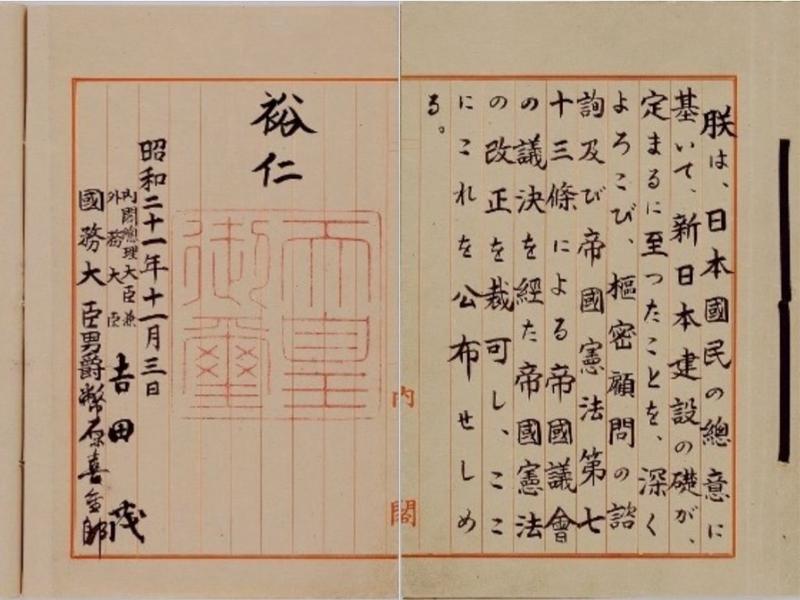 朕は、日本國民の總意に
基いて、新日本建設の礎が、
定まるに至つたことを、深く
よろこび、樞密顧問の諮
詢及び帝國憲法第七
十三條による帝國議會
の議決を経た帝國憲法
の改正を裁可し、ここ
にこれを公布せしめ
る。
内閣
裕仁
天皇御璽
昭和二十一年十一月三日
内閣總理大臣兼
外務大臣
吉田茂
國務大臣男爵幣原喜重郎